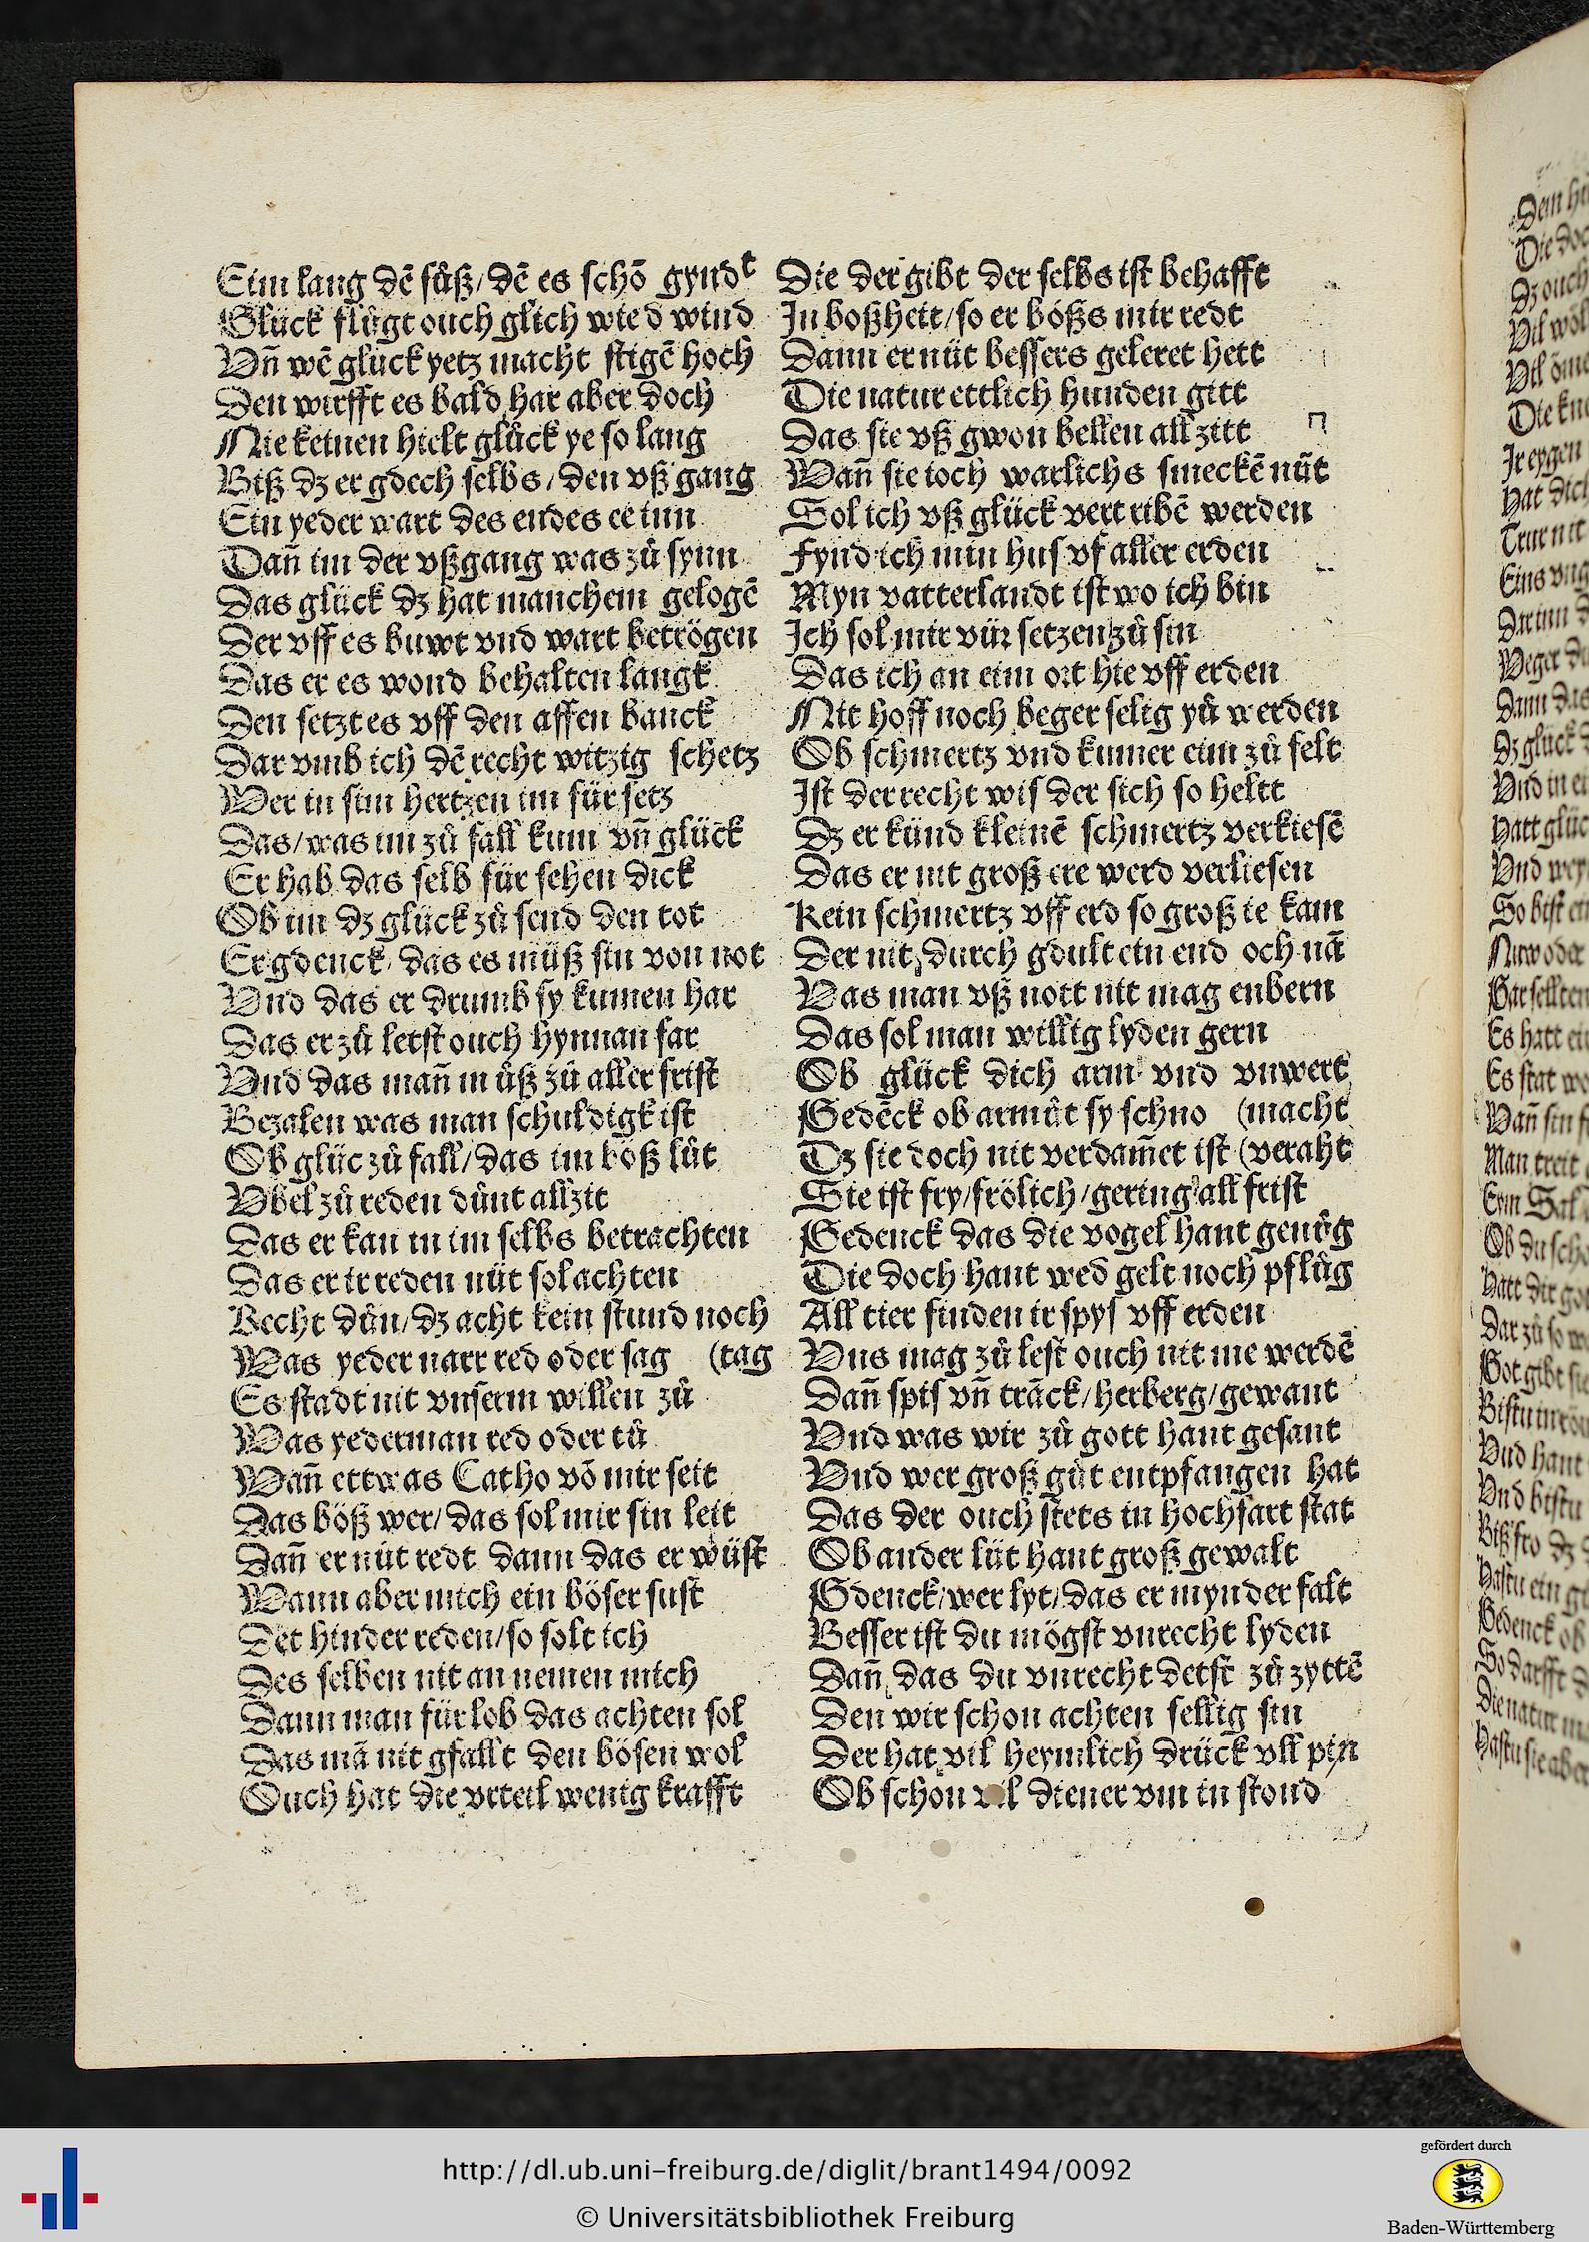 Eim lang dē sůß/dē es schō gyndt
Glück flügt ouch glich wie d wind
Vn̄ wē glück yetz macht stigē hoch
Den wirfft es bald har aber doch
Nie keinen hielt glück ye so lang
Biß dz er gdech selbs/den vß gang
Ein yeder wart des endes ee inn
Dan̄ im der vßgang was zů synn
Das glück dz hat manchem gelogē
Der vff es buwt vnd wart betrögen
Das er es wond behalten langk
Den setzt es vff den affen banck
Dar vmb ich dē recht witzig schetz
Wer in sim hertzen im für setz
Das/was im zů fall kum vn̄ glück
Er hab das selb für sehen dick
Ob im dz glück zů send den tot
Er gdenck/das es müß sin von not
Vnd das er drumb sy kumen har
Das er zů letst ouch hynnan far
Vnd das man̄ můß zů aller frist
Bezalen was man schuldigk ist
Ob glüc zů fall/das im böß lüt
Vbel zů reden dünt allzit
Das er kan in im selbs betrachten
Das er ir reden nüt sol achten
Recht důn/dz acht kein stund noch
Was yeder narr red oder sag (tag
Es stadt nit vnserm willen zů
Was yederman red oder tů
Wan̄ ettwas Catho vō mir seit
Das böß wer/das sol mir sin leit
Dan̄ er nüt redt dann das er wüst
Wann aber mich ein böser sust
Det hinder reden/so solt ich
Des selben nit an nemen mich
Dann man für lob das achten sol
Das mā nit gfallt den bösen wol
Ouch hat die vrteil wenig krafft
Die der gibt der selbs ist behafft
In boßheit/so er bößs mir redt
Dann er nüt bessers geleret hett
Die natur ettlich hunden gitt
Das sie vß gwon bellen all zitt
Wan̄ sie ioch warlichs smeckē nüt
Sol ich vß glück vertribē werden
Fynd ich min hus vf aller erden
Myn vatterlandt ist wo ich bin
Ich sol mir vür setzen zů sin
Das ich an eim ort hie vff erden
Nit hoff noch beger selig yů werden
Ob schmertz vnd kumer eim zů felt
Ist der recht wis der sich so heltt
Dz er künd kleinē schmertz verkiesē
Das er nit groß ere werd verliesen
Kein schmertz vff erd so groß ie kam
Der nit durch gdult ein end och nā
Was man vß nott nit mag enbern
Das sol man willig lyden gern
Ob glück dich arm vnd vnwert
Gedēck ob armůt sy schno (macht
Dz sie doch nit verdam̄et ist (veraht
Sie ist fry/frölich/gering all frist
Gedenck das die vogel hant genůg
Die doch hant wed gelt noch pflůg
All tier finden ir spys vff erden
Vns mag zů lest ouch nit me werdē
Dan̄ spis vn̄ träck/herberg/gewant
Vnd was wir zů gott hant gesant
Vnd wer groß gůt entpfangen hat
Das der ouch stets in hochfart stat
Ob ander lüt hant groß gewalt
Gdenck/wer lyt/das er mynder falt
Besser ist du mögst vnrecht lyden
Dan̄ das du vnrecht detst zů zyttē
Den wir schon achten sellig sin
Der hat vil heymlich drück vll pin
Ob schon vil diener vm in stond
http://dl.ub.uni-freiburg.de/diglit/brant1494/0092
© Universitätsbibliothek Freiburg
gefördert durch
Baden-Württemberg